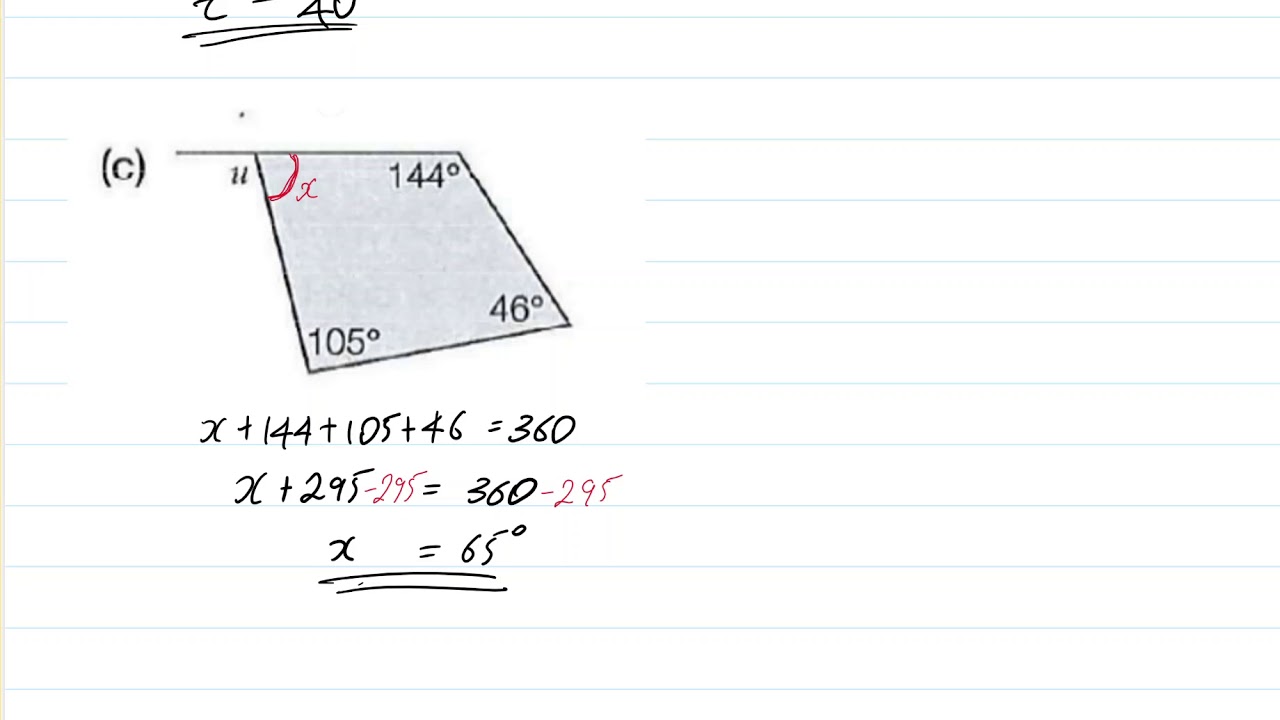 (c)
u
x
144°
46°
105°
x + 144 + 105 + 46 = 360
x + 295 - 295 = 360 - 295
x = 65°